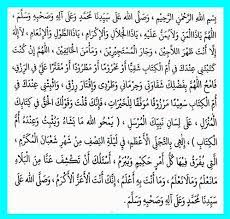 بِسْمِ اللهِ الرَّحْمٰنِ الرَّحِيْمِ ، وَصَلَّى اللهُ عَلَى سَيِّدِنَا مُحَمَّدٍ وَعَلَى آلِهِ وَصَحْبِهِ وَسَلَّمَ ،
اللّٰهُمَّ يَاذَا الْمَنِّ وَلَايُمَنُّ عَلَيْهِ ، يَاذَا الْجَلَالِ وَالْإِكْرَامِ ، يَاذَا الطَّوْلِ وَالْإِنْعَامِ ، لَاإِلٰهَ
إِلَّا أَنْتَ ظَهْرَ اللَّاجِيْنَ ، وَجَارَ الْمُسْتَجِيْرِيْنَ ، وَمَأْمَنَ الْخَائِفِيْنَ ، اللّٰهُمَّ إِنْ كُنْتَ
كَتَبْتَنِي عِنْدَكَ فِي أُمِّ الْكِتَابِ شَقِيًّا أَوْ مَحْرُوْمًا أَوْ مَطْرُوْدًا أَوْ مُقْتَرًا عَلَيَّ فِي الرِّزْقِ،
فَامْحُ اللّٰهُمَّ بِفَضْلِكَ شَقَاوَتِي وَحِرْمَانِي وَطَرْدِي وَإِقْتَارَ رِزْقِي ، وَأَثْبِتْنِي عِنْدَكَ فِي
أُمِّ الْكِتَابِ سَعِيْدًا مَرْزُوْقًا مُوَفَّقًا لِلْخَيْرَاتِ، فَإِنَّكَ قُلْتَ وَقَوْلُكَ الْحَقُّ فِي كِتَابِكَ
الْمُنْزَلِ ، عَلَى لِسَانِ نَبِيِّكَ الْمُرْسَلِ ، ( يَمْحُو اللهُ مَا يَشَاءُ وَيُثْبِتُ وَعِنْدَهُ أُمُّ
الْكِتَابِ ) ، إِلٰهِي بِالتَّجَلِّي الْأَعْظَمِ ، فِي لَيْلَةِ النِّصْفِ مِنْ شَهْرِ شَعْبَانَ الْمُكَرَّمِ ،
الَّتِي يُفْرَقُ فِيْهَا كُلُّ أَمْرٍ حَكِيْمٍ وَيُبْرَمُ ، أَسْأَلُكَ أَنْ تَكْشِفَ عَنَّا مِنَ الْبَلَاءِ
مَانَعْلَمُ وَمَالَانَعْلَمُ ، وَمَا أَنْتَ بِهِ أَعْلَمُ ، إِنَّكَ أَنْتَ الْأَعَزُّ الْأَكْرَمُ ، وَصَلَّى اللهُ عَلَى
سَيِّدِنَا مُحَمَّدٍ وَعَلَى آلِهِ وَصَحْبِهِ وَسَلَّمَ.